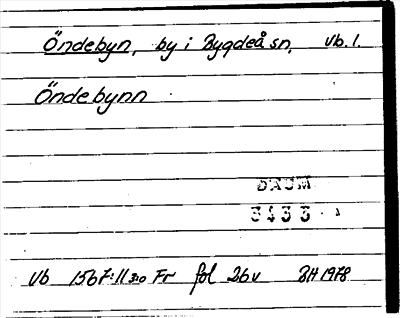 Öndebyn, by i Bygdeå sn, Vb. l.
Öndebynn
DAUM
3433
Vb 1567:11 Fr fol 26v BH 1978